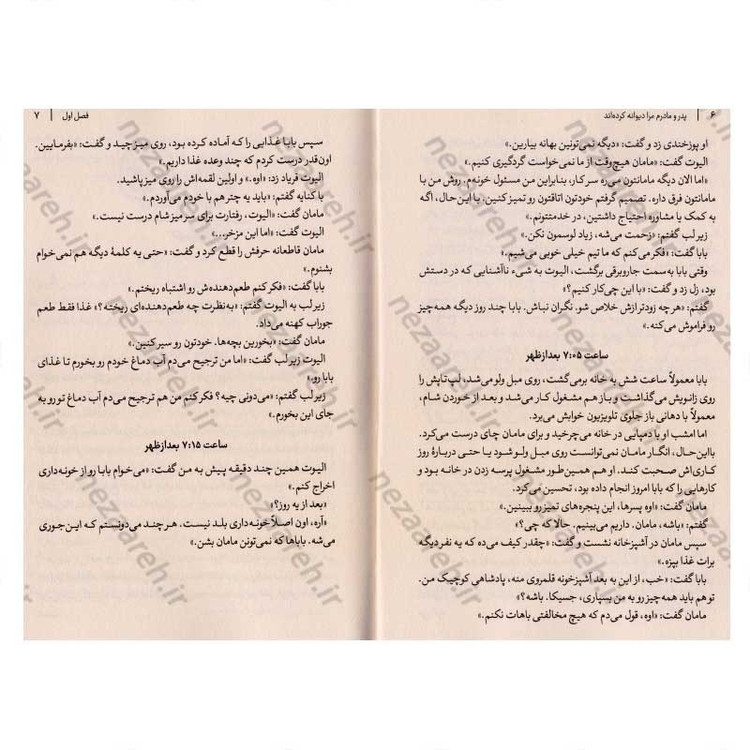 ۶ | پدر و مادرم مرا دیوانه کرده‌اند
او پوزخندی زد و گفت: «دیگه نمی‌تونین بهانه بیارین.»
الیوت گفت: «مامان هیچ‌وقت از ما نمی‌خواست گردگیری کنیم.»
«اما الان دیگه مامانتون می‌ره سر کار، بنابراین من مسئول خونه‌م. روش من با
مامانتون فرق داره. تصمیم گرفتم خودتون اتاقتون رو تمیز کنین. با این حال، اگه به
کمک یا مشاوره احتیاج داشتین، در خدمتتونم.»
زیر لب گفتم: «زحمت می‌شه، زیاد لوسمون نکن.»
بابا گفت: «فکر می‌کنم که ما تیم خیلی خوبی می‌شیم.»
وقتی بابا به‌سمت جاروبرقی برگشت، الیوت به شیء ناآشنایی که در دستش
بود، زل زد و گفت: «با این چی‌کار کنیم؟»
گفتم: «هر چه زودتر ازش خلاص شو. نگران نباش. بابا چند روز دیگه همه‌چیز
رو فراموش می‌کنه.»
ساعت ۷:۰۵ بعدازظهر
بابا معمولاً ساعت شش به خانه برمی‌گشت، روی مبل ولو می‌شد، لپ‌تاپش را
روی زانویش می‌گذاشت و باز هم مشغول کار می‌شد و بعد از خوردن شام،
معمولاً با دهانی باز جلوی تلویزیون خوابش می‌برد.
اما امشب او با دمپایی در خانه می‌چرخید و برای مامان چای درست می‌کرد.
بااین‌حال، انگار مامان نمی‌توانست روی مبل ولو شود یا حتی دربارهٔ روز
کاری‌اش صحبت کند. او هم همین‌طور مشغول پرسه زدن در خانه بود و
کارهایی را که بابا امروز انجام داده بود، تحسین می‌کرد.
مامان گفت: «اوه پسرها، این پنجره‌های تمیز رو ببینین.»
گفتم: «باشه، مامان. داریم می‌بینیم. حالا که چی؟»
سپس مامان در آشپزخانه نشست و گفت: «چقدر کیف می‌ده که یه نفر دیگه
برات غذا بپزه.»
بابا گفت: «خب، از این به بعد آشپزخونه قلمروی منه، پادشاهی کوچیک من.
تو هم باید همه‌چیز رو به من بسپاری، جسیکا. باشه؟»
مامان گفت: «اوه، قول می‌دم که هیچ مخالفتی باهات نکنم.»
فصل اول | ۷
سپس بابا غذایی را که آماده کرده بود، روی میز چید و گفت: «بفرمایین.
اون‌قدر درست کردم که چند وعده غذا داریم.»
الیوت فریاد زد: «اوه.» و اولین لقمه‌اش را روی میز پاشید.
با کنایه گفتم: «باید یه چتر هم با خودم می‌آوردم.»
مامان گفت: «الیوت، رفتارت برای سر میز شام درست نیست.»
الیوت گفت: «اما این مزخر...»
مامان قاطعانه حرفش را قطع کرد و گفت: «حتی یه کلمهٔ دیگه هم نمی‌خوام
بشنوم.»
بابا گفت: «فکر کنم طعم‌دهنده‌ش رو اشتباه ریختم.»
زیر لب به الیوت گفتم: «به‌نظرت چه طعم‌دهنده‌ای ریخته؟» غذا فقط طعم
جوراب کهنه می‌داد.
مامان گفت: «بخورین بچه‌ها. خودتون رو سیر کنین.»
الیوت زیر لب گفت: «اما من ترجیح می‌دم آب دماغ خودم رو بخورم تا غذای
بابا رو.»
زیر لب گفتم: «می‌دونی چیه؟ فکر کنم من هم ترجیح می‌دم آب دماغ تو رو به
جای این بخورم.»
ساعت ۷:۱۵ بعدازظهر
الیوت همین چند دقیقه پیش به من گفت: «می‌خوام بابا رو از خونه‌داری
اخراج کنم.»
«بعد از یه روز؟»
«آره، اون اصلاً خونه‌داری بلد نیست. هر چند می‌دونستم که این‌جوری
می‌شه. باباها که نمی‌تونن مامان بشن.»
nezaareh.ir